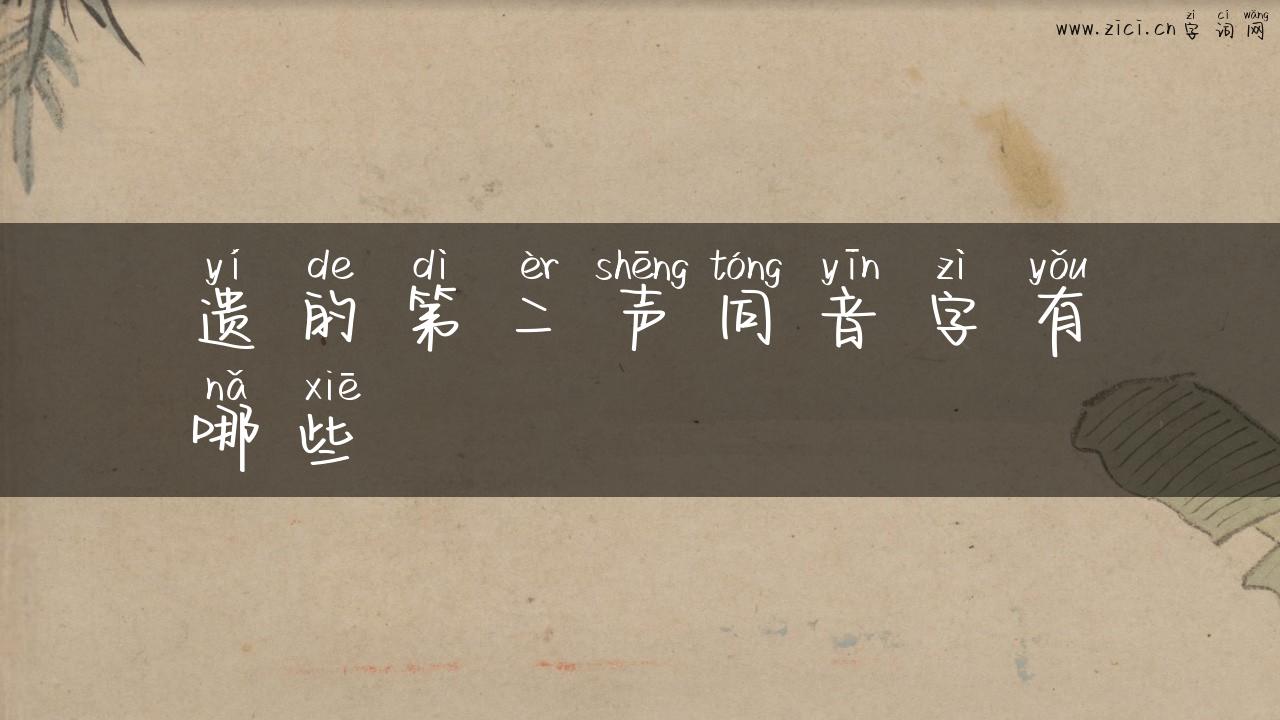 zì cí wǎng
www.zici.cn 字词网
yí de dì èr shēng tóng yīn zì yǒu
遗的第二声同音字有
nǎ xiē
哪些